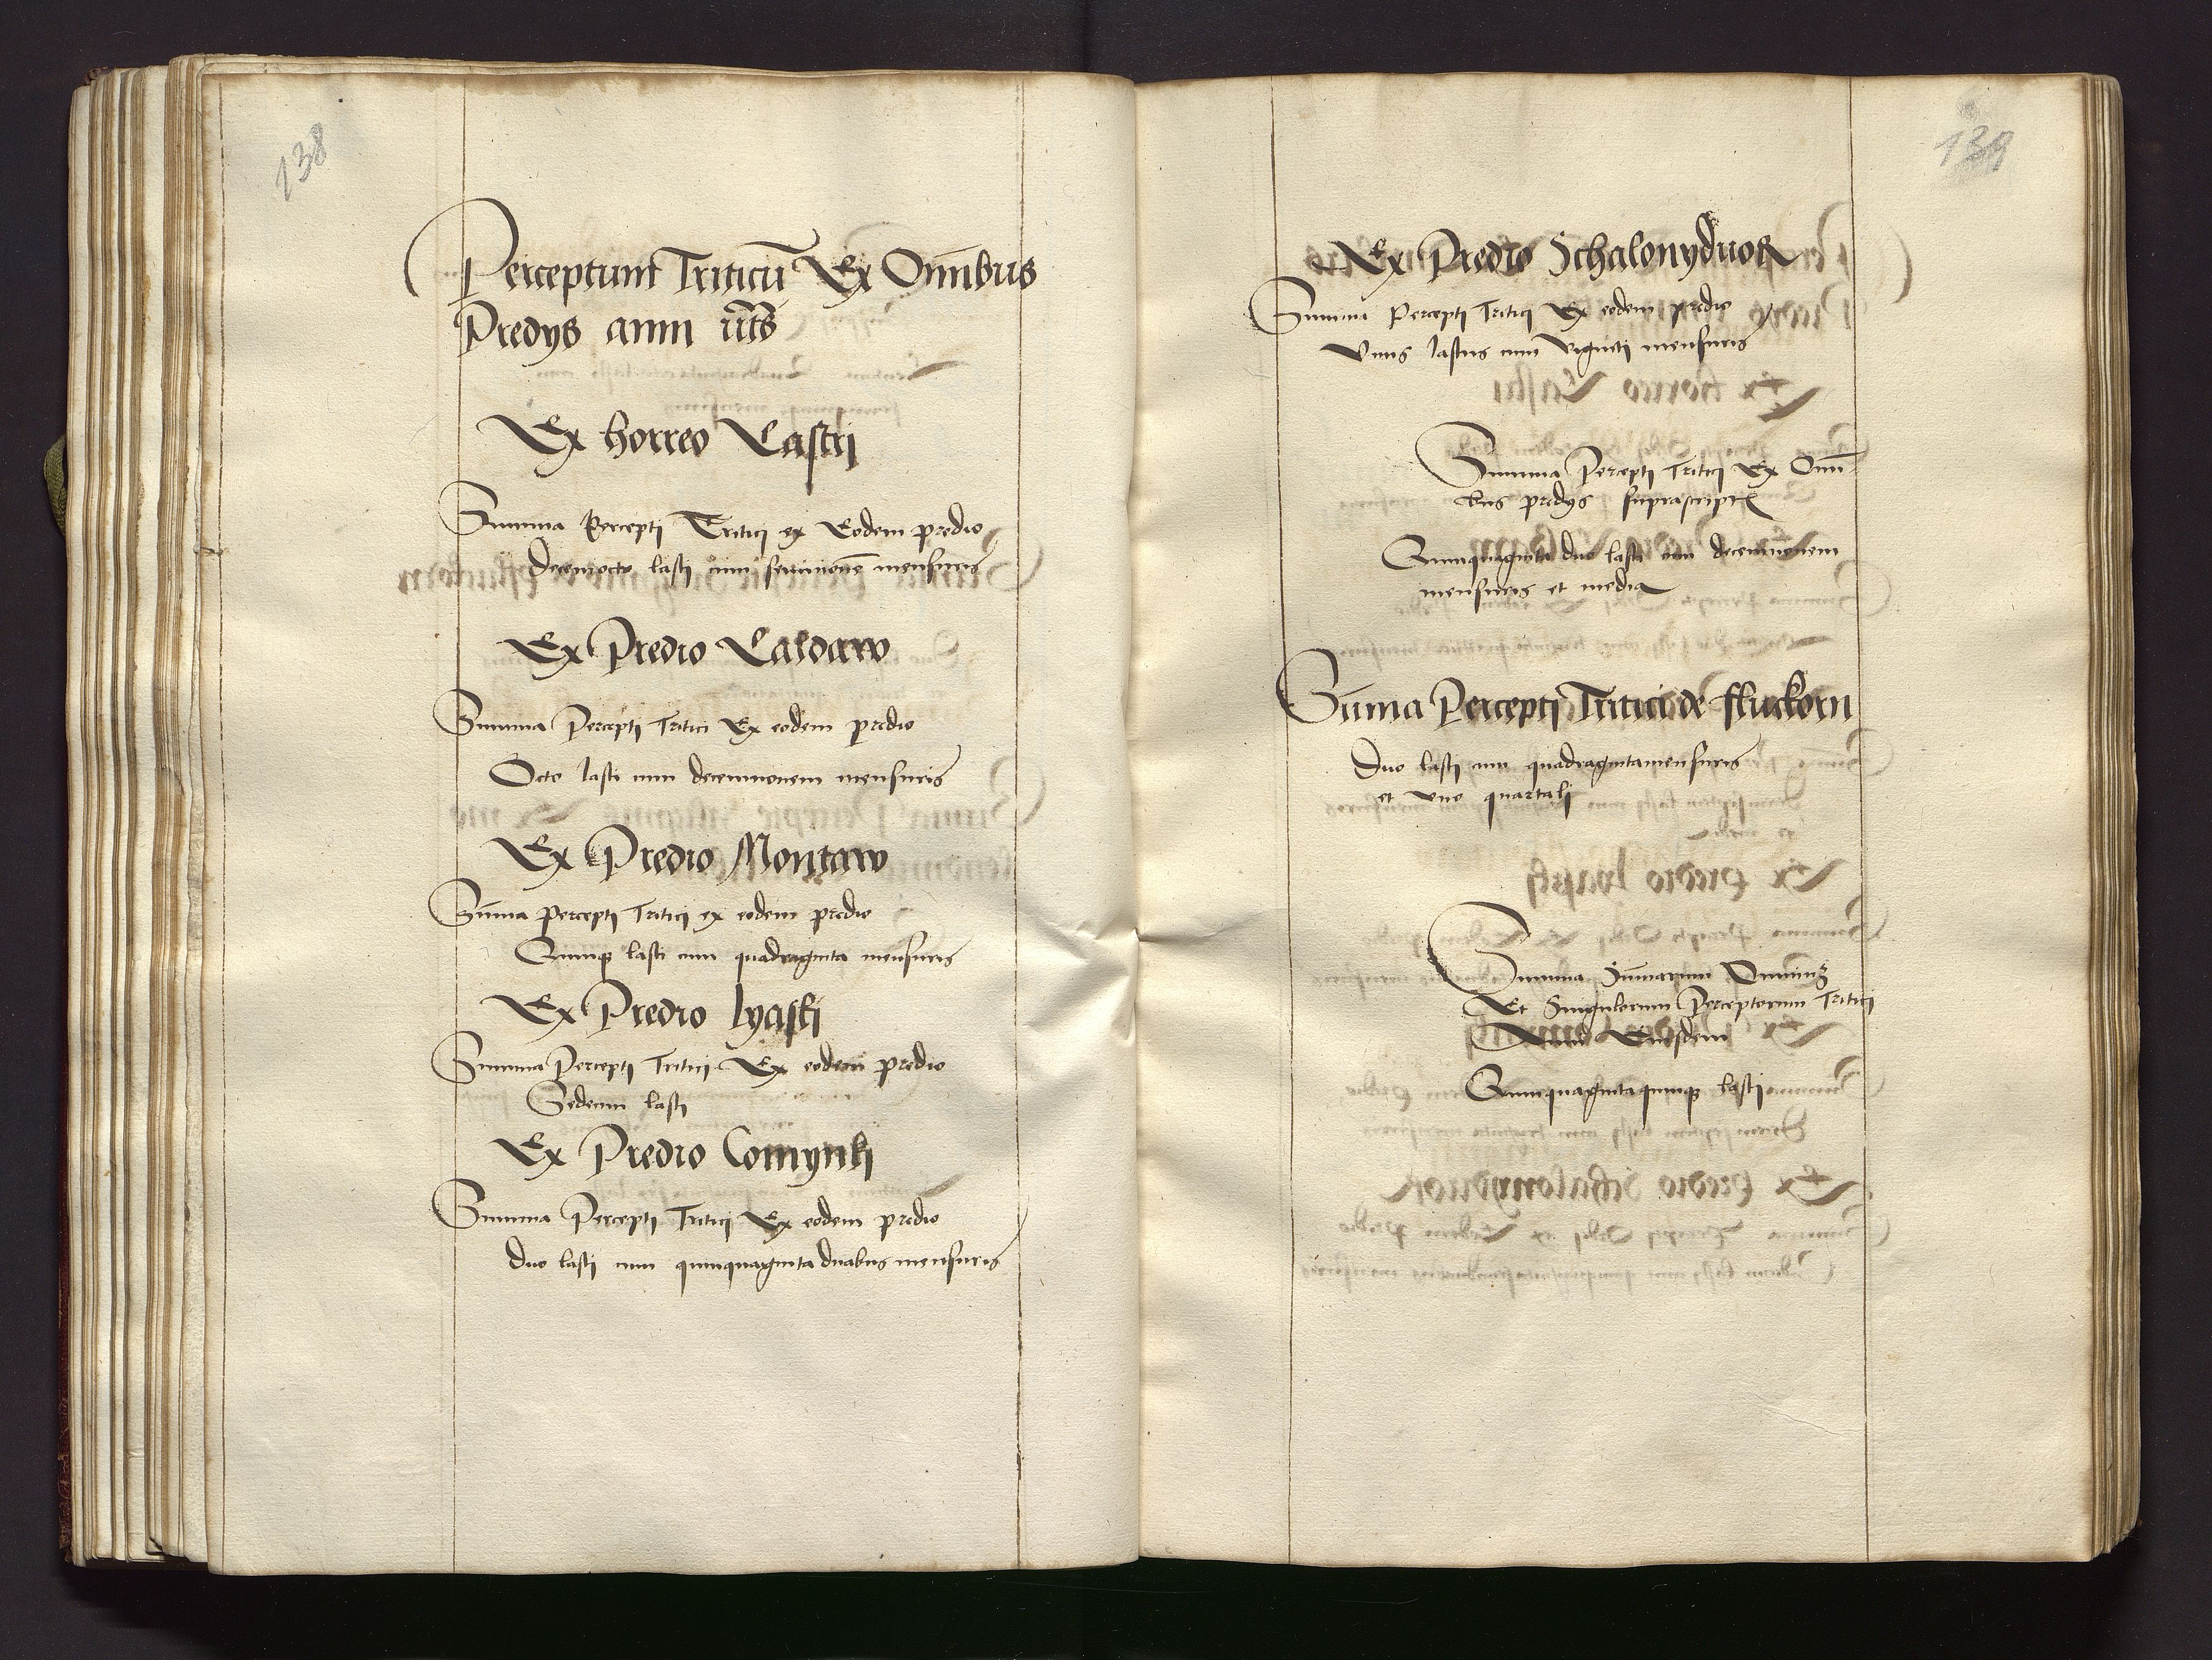 138
Perceptum Triticū Ex Om̄ibus
Predys anni ut̄s
Ex horreo Castri
Summa Percepti Tritici ex Eodem predio
Decemocto lasti cum semineue mensuris
Ex Predio Caldaw
Summa Percepti Tritici Ex eodem predio
Octo lasti cum decemnouem mensuris
Ex Predio Montaw
Sūma percepti Tritici ex eodem predio
Quinqꝫ lasti cum quadraginta mensuris
Ex Predio lyasky
Summa Percepti Tritici Ex eodem predio
Sedecim lasti
Ex Predio Comynky
Summa Percepti Tritici Ex eodem predio
duo lasti cum quinquaginta duabus mensuris
139
Ex Predio Schalonyduor
Summa Percepti Tritici Ex eodem predio
Vnus lastus cum viginti mensuris
Summa Percepti Tritici Ex Om̄i
bus predys suprascriptꝭ
Quinquaginta duo lasti cum decemnouem
mensuris et media
Sūma Percepti Tritici de fluckorn
Duo lasti cum quadragintamensuris
et vno quartali
Summa Sūmarum Omniuꝫ
Et Singulorum Perceptorum Tritici
Anni Eiusdem
Quinquagintaquinqꝫ lasti